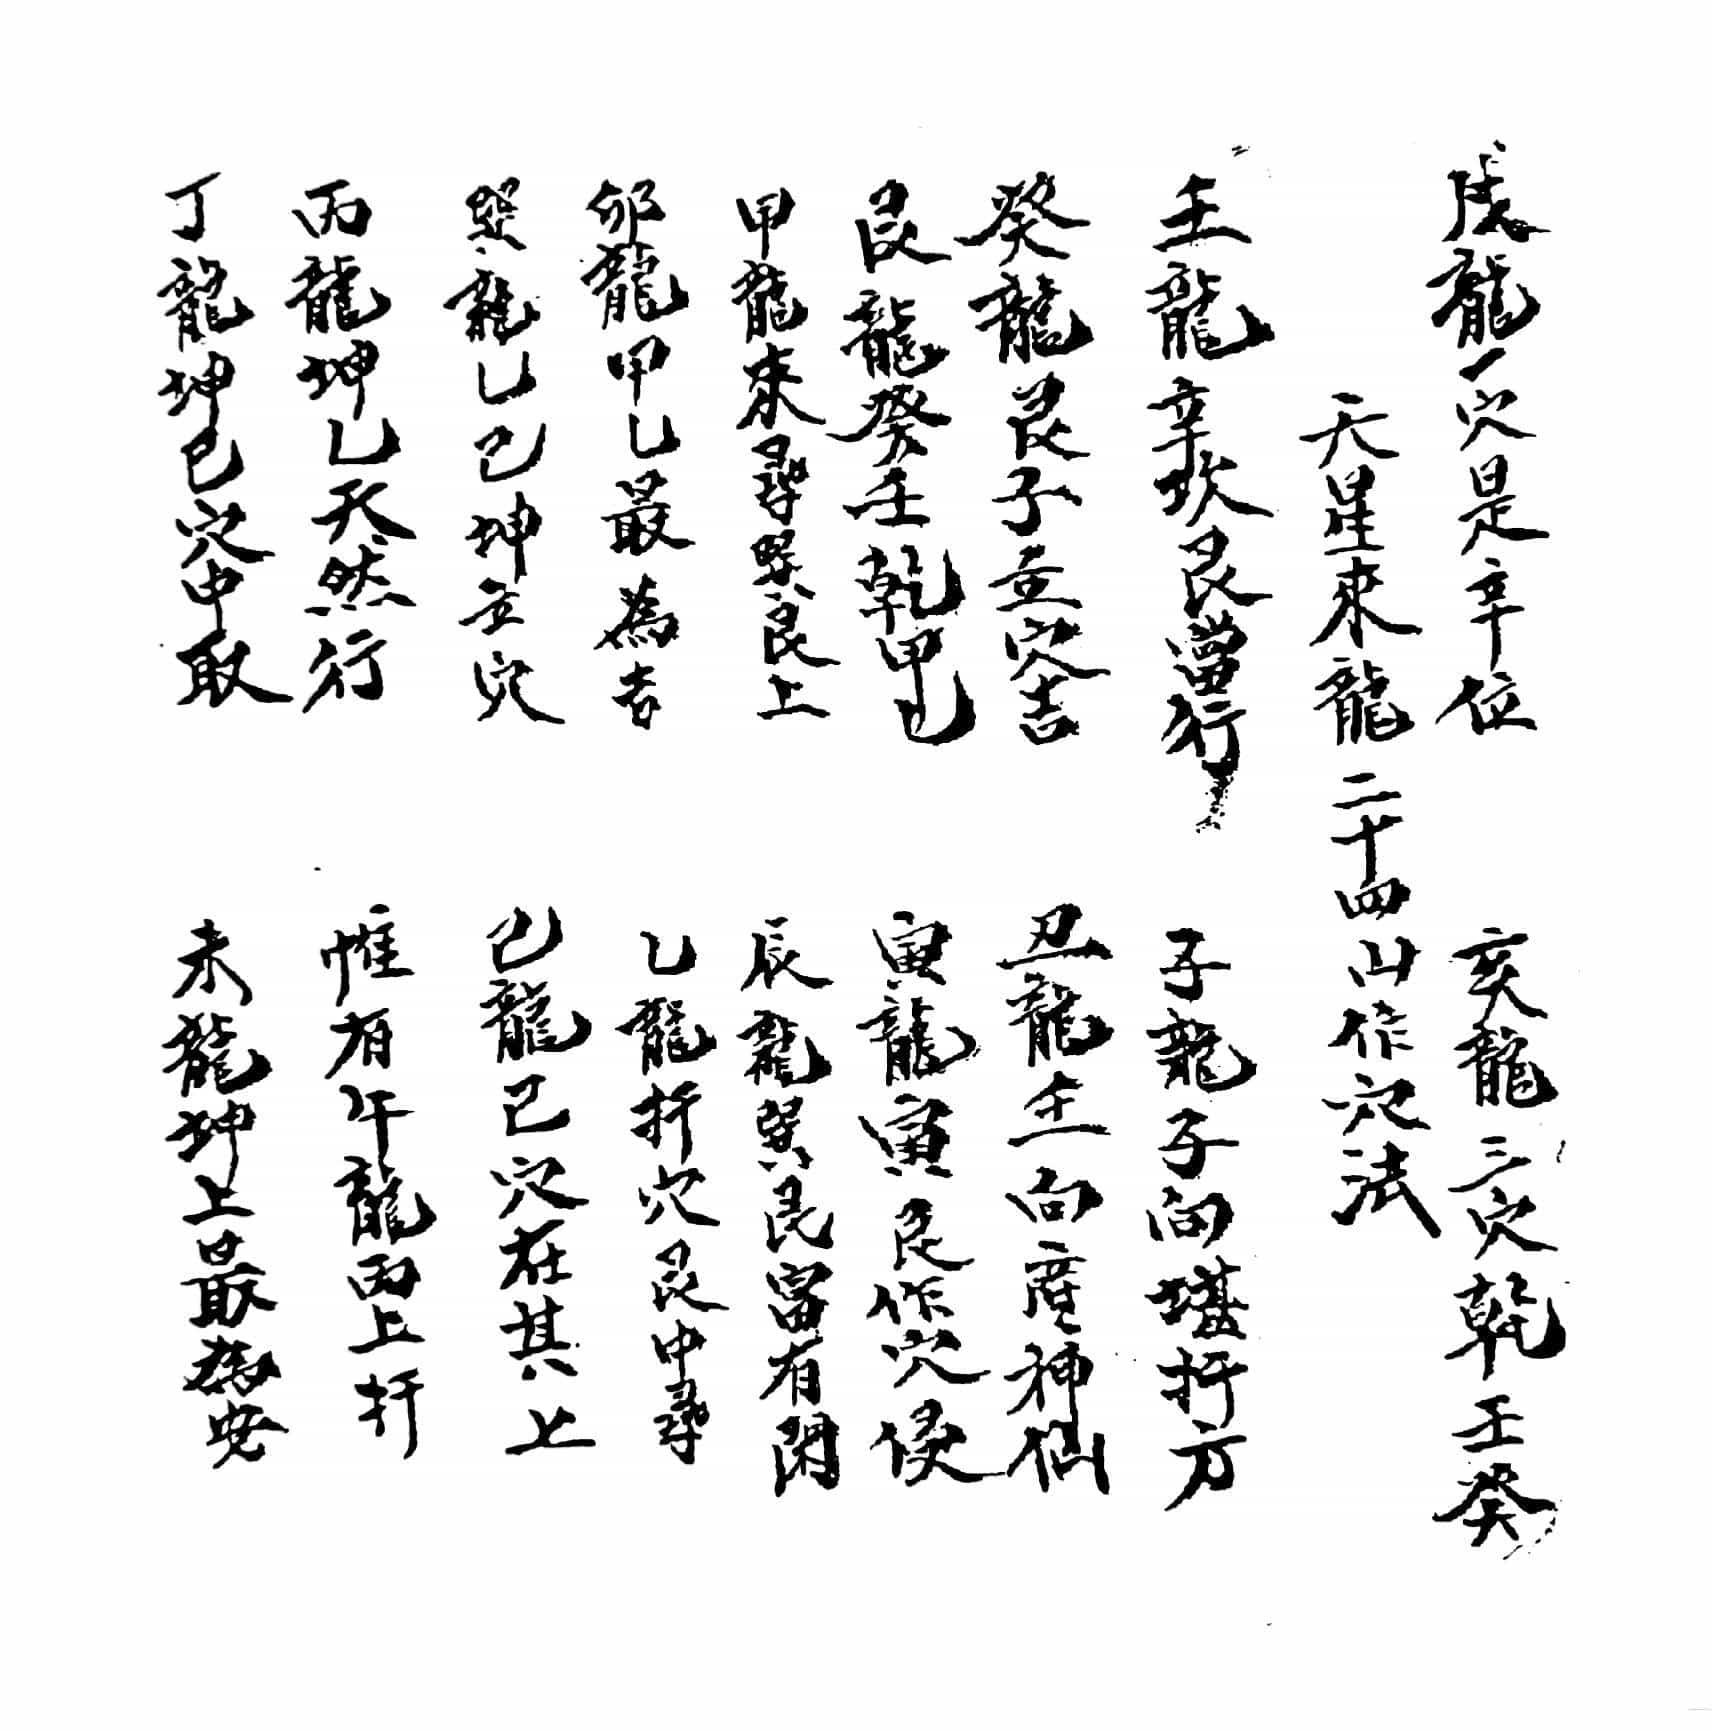 龍一穴是辛位　亥龍三穴乾壬癸
天星來龍二十四山作穴法
壬龍辛坎艮當行　子龍子向堪扦方
癸龍艮子立穴吉　丑龍壬向産神仙
艮龍癸壬乾甲乙　寅龍寅艮作穴侵
甲龍來尋巽艮上　辰龍巽艮富有閑
卯龍甲乙最為吉　乙龍扦穴艮中尋
巽龍乙巳坤立穴　巳龍巳穴在其上
丙龍坤乙天然行　惟有午龍丙上扦
丁龍坤巳穴中取　未龍坤上最為安